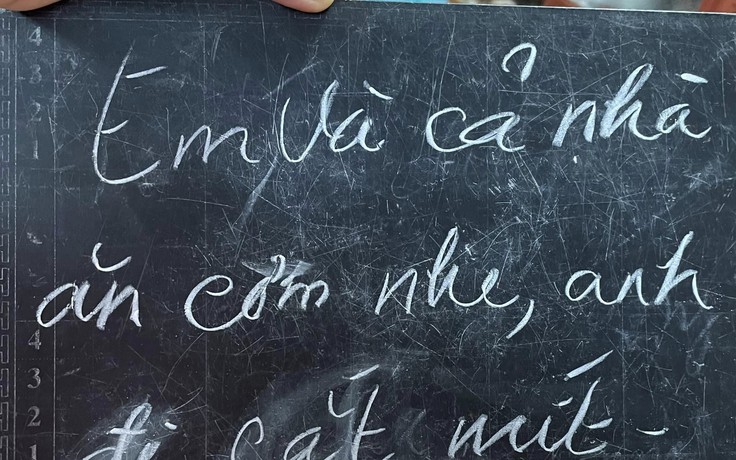 Em và cả nhà
ăn cơm nhe, anh
đi cắt mít -
4
3
2
1
4
3
2
1